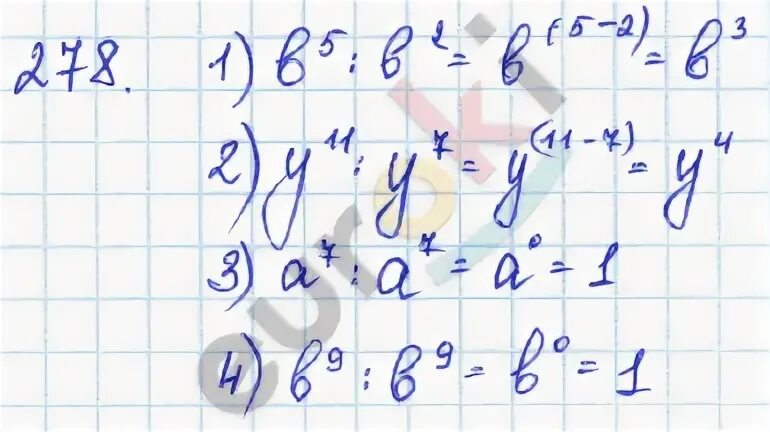 278. 1) b⁵ : b² = b⁽⁵⁻²⁾ = b³
2) y¹¹ : y⁷ = y⁽¹¹⁻⁷⁾ = y⁴
3) a⁷ : a⁷ = a⁰ = 1
4) b⁹ : b⁹ = b⁰ = 1
euroki